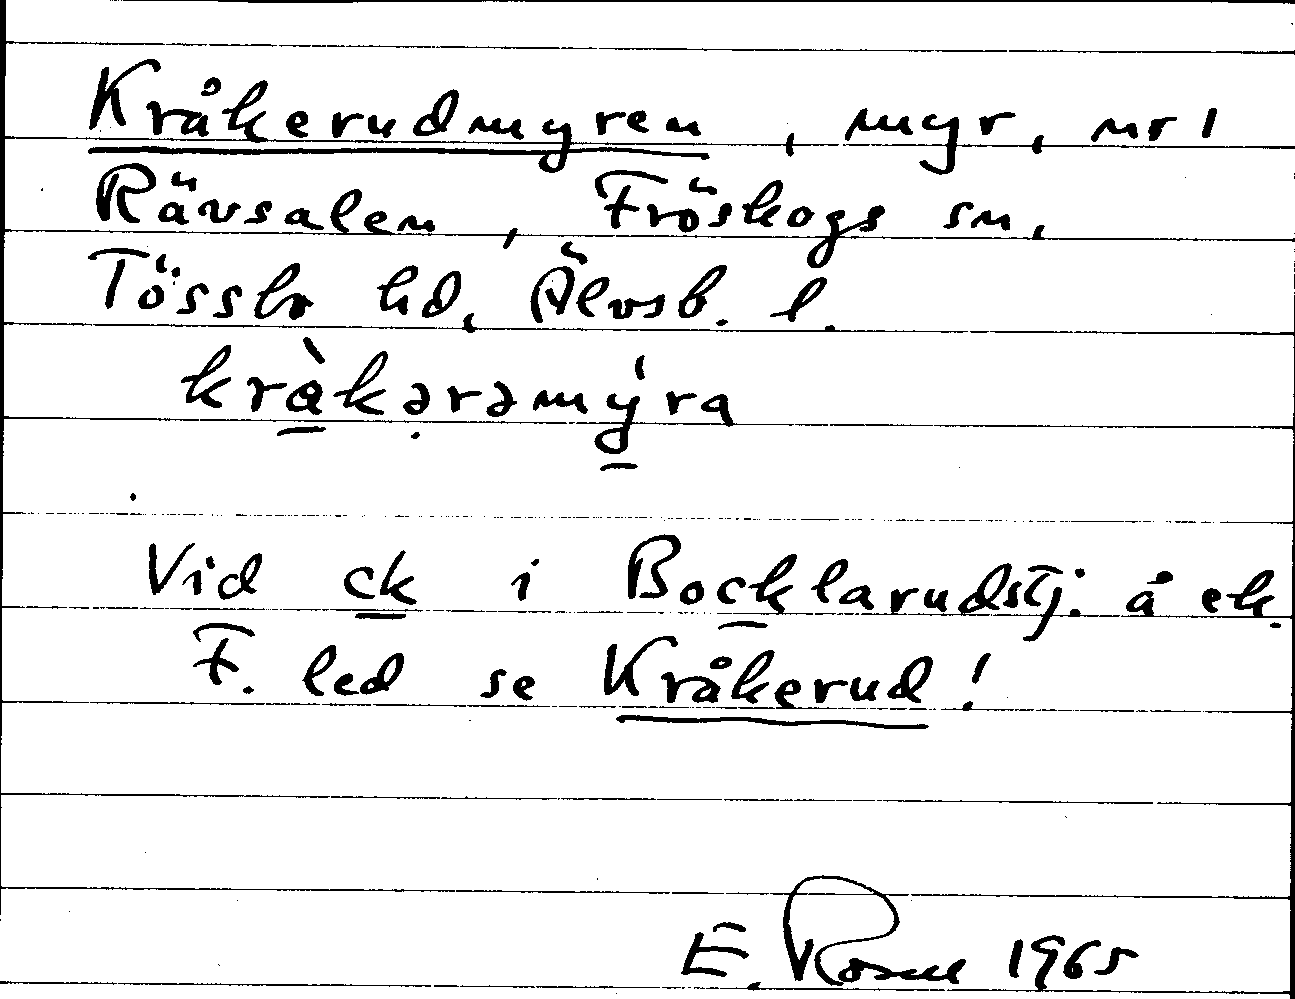 Kråkerudmyren, myr, nr 1
Rävsalen, Fröskogs sn,
Tössbo hd, Älvsb. l.
kràkərəmýra
Vid ck i Bocklarudstj. å ek.
F. led se Kråkerud!
E. Rosell 1965